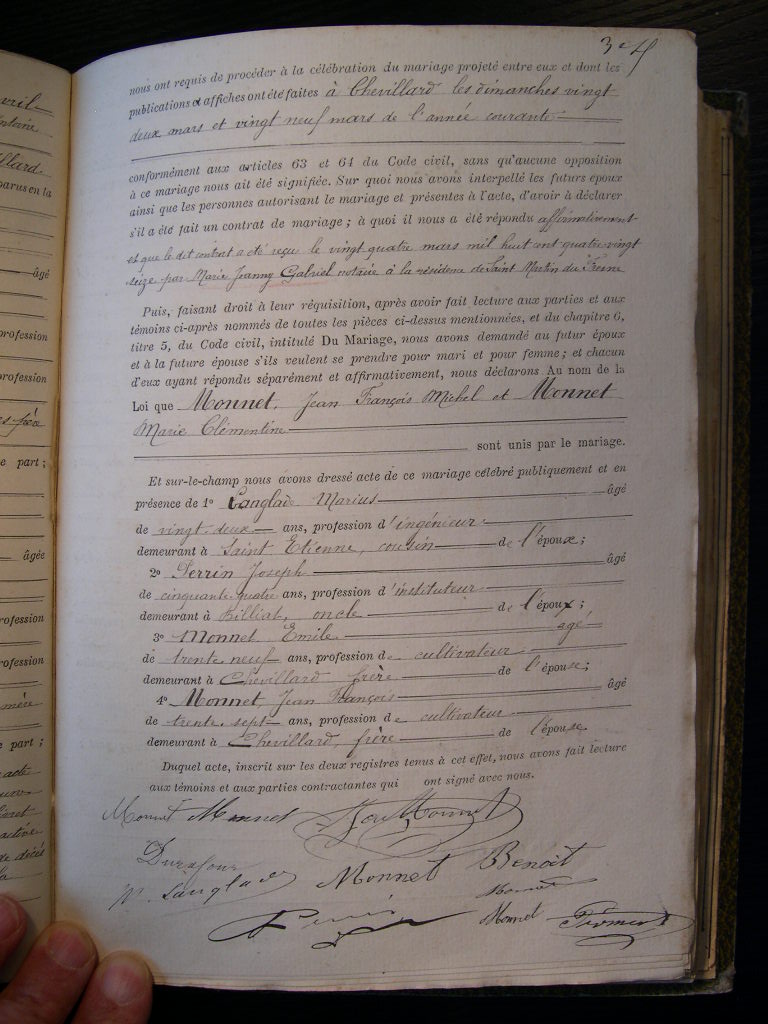 vril
ntoine
llard.
parus en la
âgé
profession
profession
es frère
e part ;
âgée
ofession
ofession
mère
e part ;
acte
active
décès
3e f
nous ont requis de procéder à la célébration du mariage projeté entre eux et dont les
publications et affiches ont été faites à Chevillard les dimanches vingt
deux mars et vingt neuf mars de l'année courante
conformément aux articles 63 et 64 du Code civil, sans qu'aucune opposition
à ce mariage nous ait été signifiée. Sur quoi nous avons interpellé les futurs époux
ainsi que les personnes autorisant le mariage et présentes à l'acte, d'avoir à déclarer
s'il a été fait un contrat de mariage ; à quoi il nous a été répondu affirmativement
et que le dit contrat a été reçu le vingt quatre mars mil huit cent quatre vingt
seize par Marie Jeanny Gabriel notaire à la résidence de Saint Martin du Fresne
Puis, faisant droit à leur réquisition, après avoir fait lecture aux parties et aux
témoins ci-après nommés de toutes les pièces ci-dessus mentionnées, et du chapitre 6,
titre 5, du Code civil, intitulé Du Mariage, nous avons demandé au futur époux
et à la future épouse s'ils veulent se prendre pour mari et pour femme ; et chacun
d'eux ayant répondu séparément et affirmativement, nous déclarons Au nom de la
Loi que Monnet, Jean François Michel et Monnet
Marie Clémentine
sont unis par le mariage.
Et sur-le-champ nous avons dressé acte de ce mariage célébré publiquement et en
présence de 1º Langlade Marius âgé
de vingt-deux ans, profession d'ingénieur
demeurant à Saint Etienne, cousin de l'épouse;
2º Perrin Joseph âgé
de cinquante quatre ans, profession d'instituteur
demeurant à Billiat, oncle de l'époux;
3º Monnet Emile âgé
de trente neuf ans, profession de cultivateur
demeurant à Chevillard frère de l'épouse;
4º Monnet, Jean François âgé
de trente-sept ans, profession de cultivateur
demeurant à Chevillard, frère de l'épouse
Duquel acte, inscrit sur les deux registres tenus à cet effet, nous avons fait lecture
aux témoins et aux parties contractantes qui ont signé avec nous.
Monnet Monnet Monnet
Durafour Monnet Benoit
M. Langlade Monnet
Perrin Monnet